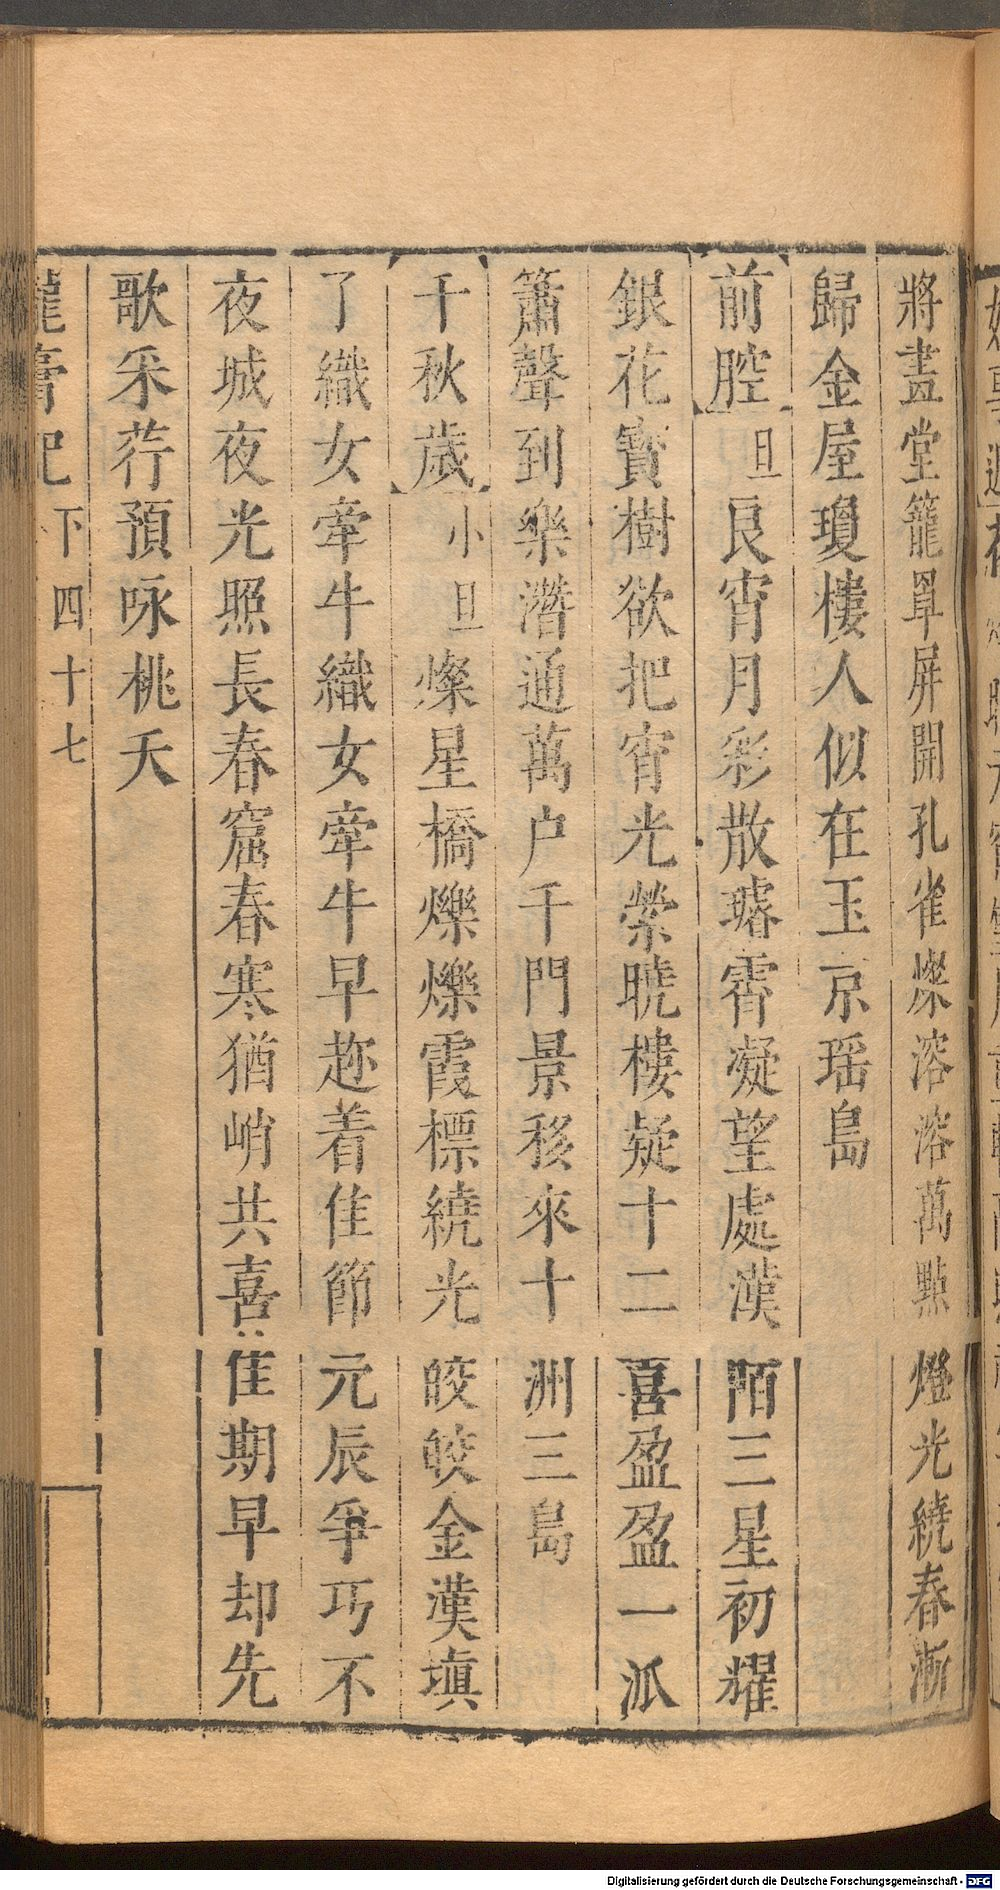 將畫堂籠罩屏開孔雀燦溶溶萬點燈光繞春漸
歸金屋瓊樓人似在玉京瑶島
前腔旦良宵月彩散璿霄凝望處漢陌三星初耀
銀花寳樹欲把宵光縈曉樓疑十二喜盈盈一派
簫聲到樂潛通萬户千門景移來十洲三島
千秋歲小旦燦星橋爍爍霞標繞光皎皎金漢塡
了織女牽牛織女牽牛早趂着佳節元辰爭巧不
夜城夜光照長春窟春寒猶峭共喜佳期早却先
歌采荇預咏桃夭
龍膏記 下 四十七
Digitalisierung gefördert durch die Deutsche Forschungsgemeinschaft - DFG